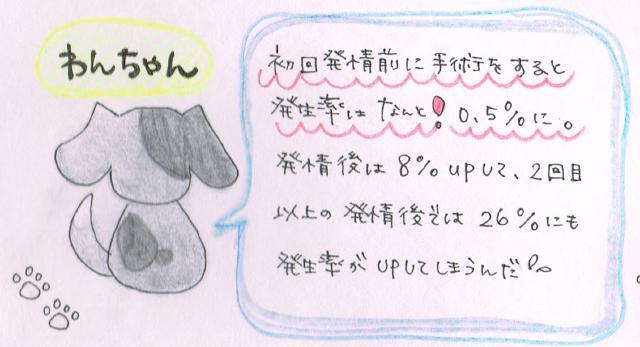 わんちゃん
初回発情前に手術をすると
発生率はなんと!0.5%に。
発情後は8%upして、2回目
以上の発情後では26%にも
発生率がupしてしまうんだ!。